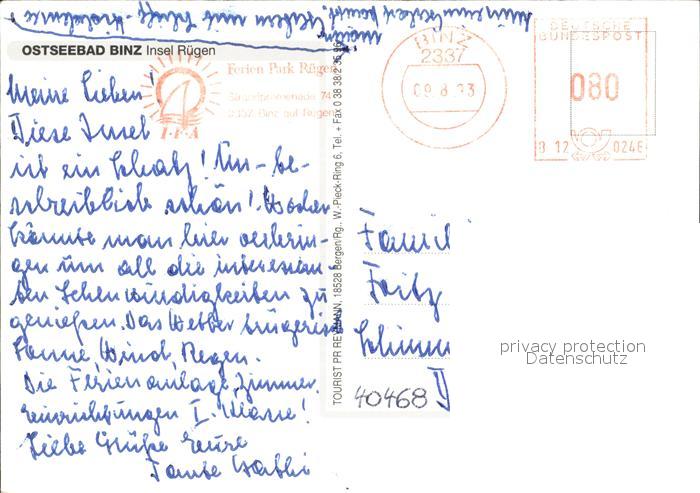 OSTSEEBAD BINZ Insel Rügen
Ferien Park Rügen
Strandpromenade 74
2337 Binz auf Rügen
I·F·A
Meine Lieben!
Diese Insel
ist ein Schatz! Un-be-
schreiblich schön! Wochen
könnte man hier verbrin-
gen um all die interessan-
ten Sehenswürdigkeiten zu
genießen. Das Wetter
Sonne Wind Regen.
Die Ferienanlage, Zimmer,
Einrichtungen I. Klasse!
Liebe Grüße Eure
Tante
TOURIST PR REYMANN, 18528 Bergen/Rg., W.-Pieck-Ring 6, Tel. + Fax 0 38 38/2
BINZ
2337
09.8.93
DEUTSCHE
BUNDESPOST
080
B 12 0246
Famil
Fritz
40468 D
privacy protection
Datenschutz